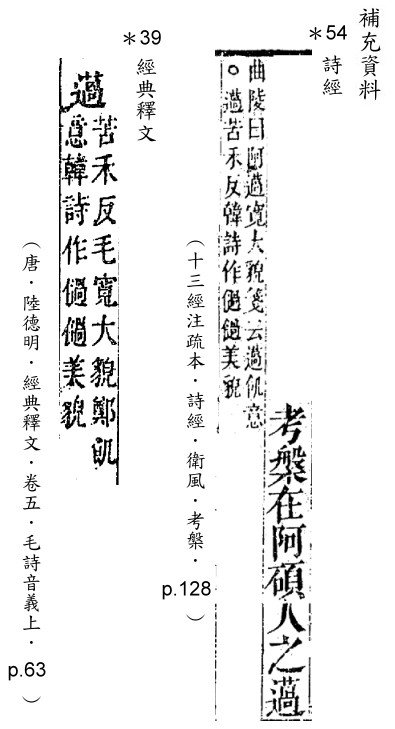 補充資料
*54 詩經
考槃在阿碩人之薖
曲陵曰阿薖寬大貌箋云薖飢意
○薖苦禾反韓詩作𠊬𠊬美貌
(十三經注疏本.詩經.衛風.考槃.p.128)
*39 經典釋文
薖
苦禾反毛寬大貌鄭飢
意韓詩作𠊬𠊬美貌
(唐.陸德明.經典釋文.卷五.毛詩音義上.p.63)